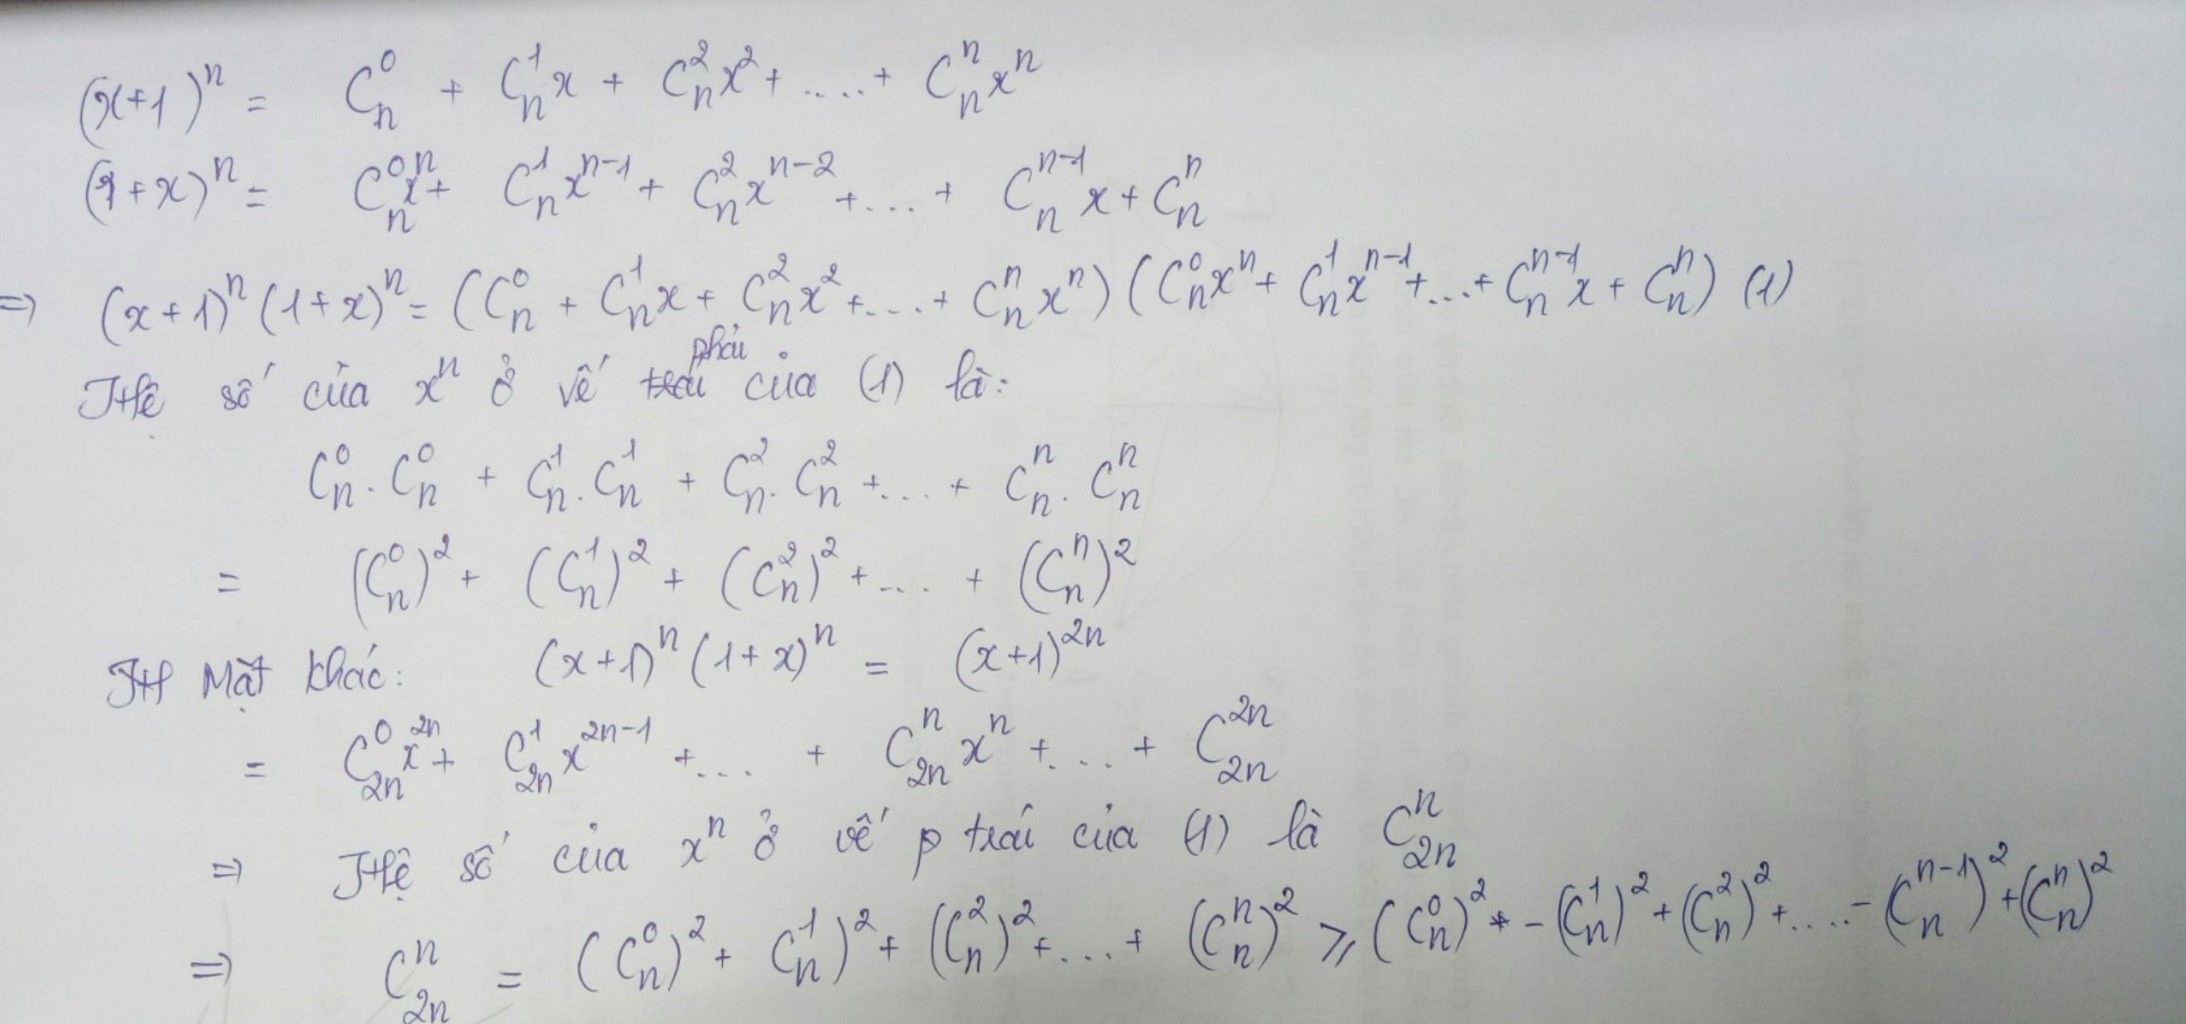 (x+1)^n = C_n^0 + C_n^1 x + C_n^2 x^2 + ....+ C_n^n x^n
(1+x)^n = C_n^0 x^n + C_n^1 x^{n-1} + C_n^2 x^{n-2} +....+ C_n^{n-1} x + C_n^n
=> (x+1)^n (1+x)^n = (C_n^0 + C_n^1 x + C_n^2 x^2 +....+ C_n^n x^n) (C_n^0 x^n + C_n^1 x^{n-1} +...+ C_n^{n-1} x + C_n^n) (1)
Hệ số của x^n ở vế phải của (1) là:
C_n^0 . C_n^0 + C_n^1 . C_n^1 + C_n^2 . C_n^2 +....+ C_n^n . C_n^n
= (C_n^0)^2 + (C_n^1)^2 + (C_n^2)^2 +.... + (C_n^n)^2
Mặt khác: (x+1)^n (1+x)^n = (x+1)^{2n}
= C_{2n}^0 x^{2n} + C_{2n}^1 x^{2n-1} +.... + C_{2n}^n x^n +....+ C_{2n}^{2n}
=> Hệ số của x^n ở vế trái của (1) là C_{2n}^n
=> C_{2n}^n = (C_n^0)^2 + C_n^1)^2 + (C_n^2)^2 +....+ (C_n^n)^2 ⩾ (C_n^0)^2 - (C_n^1)^2 + (C_n^2)^2 +....- (C_n^{n-1})^2 + (C_n^n)^2